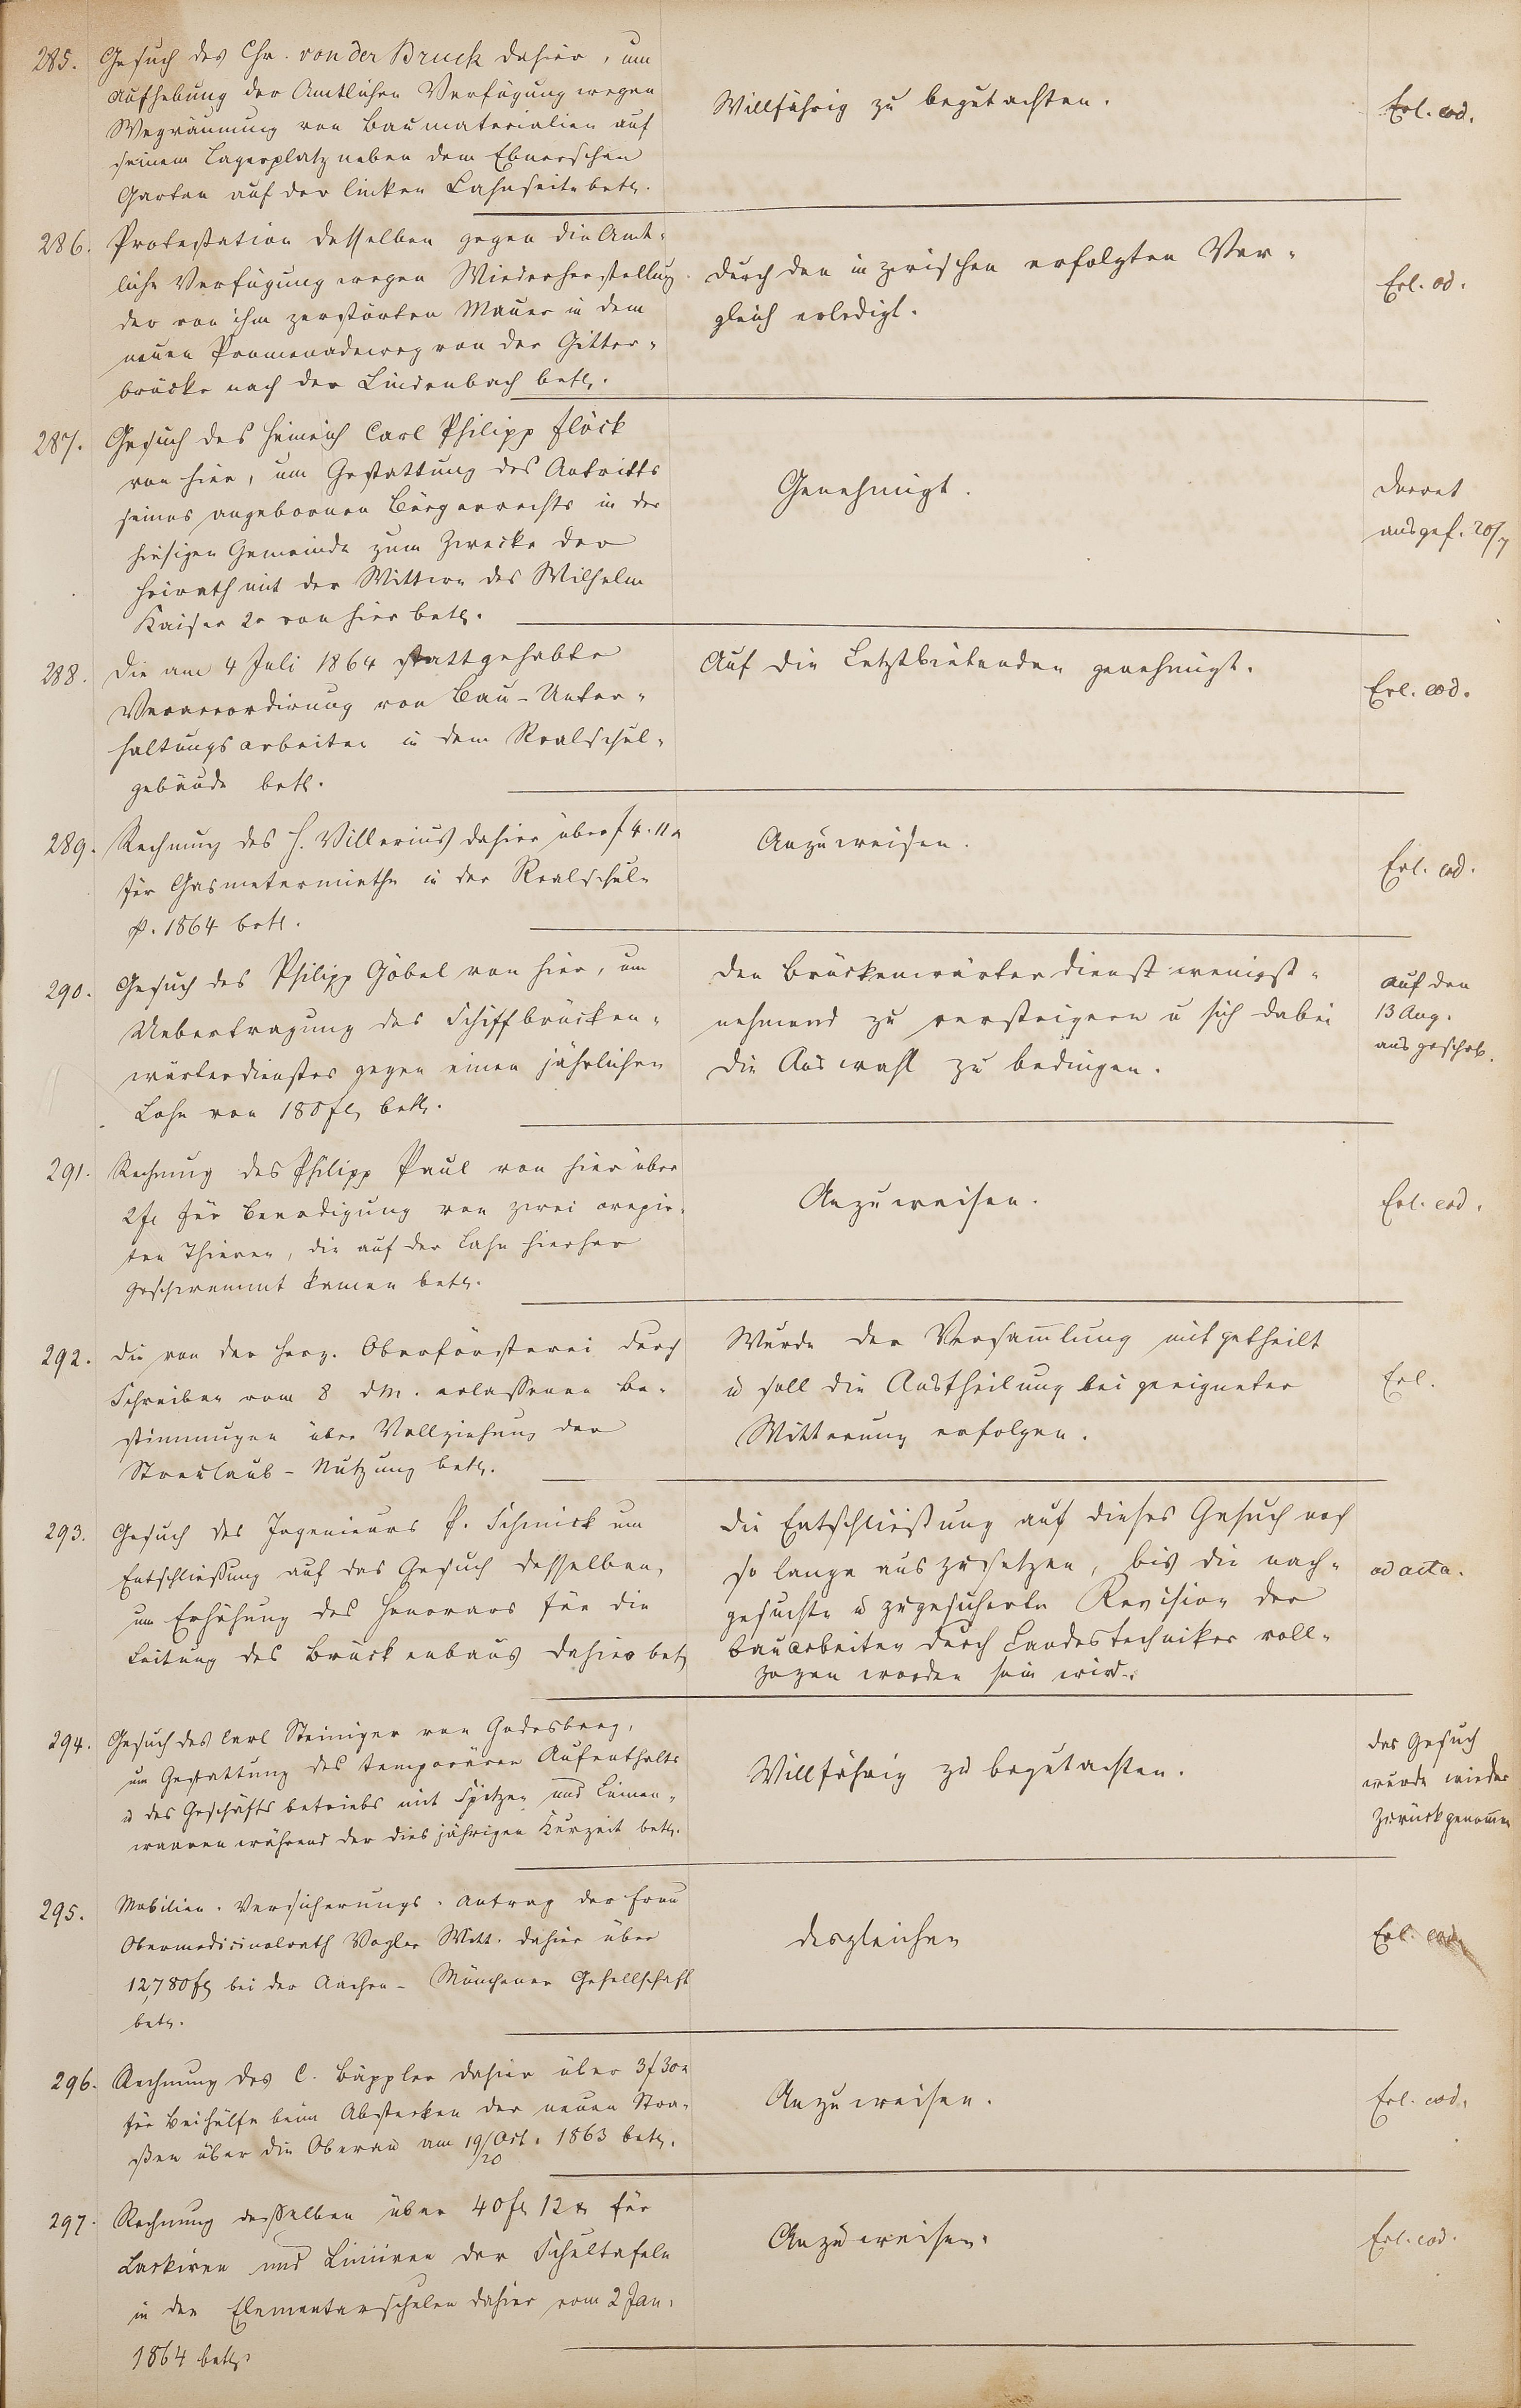 285.
Gesuch des Chr. von der Bruck dahier, um
Aufhebung der Amtlichen Verfügung wegen
Wegräumung von Baumaterialien auf
seinem Lagerplatz neben dem Ebnerschen
Garten auf der linken Lahnseite betr.
Willfährig zu begutachten.
Erl. eod.
286.
Protestation desselben gegen die Amt-
liche Verfügung wegen Wiederherstellung
der von ihm zerstörten Mauer in dem
neuen Promenadeweg von der Gitter-
brücke nach der Lindenbach betr.
Durch den inzwischen erfolgten Ver-
gleich erledigt.
Erl. eod.
287.
Gesuch des Heinrich Carl Philipp Flöck
von hier, um Gestattung des Antritts
seines angebornen Bürgerrechts in der
hiesigen Gemeinde zum Zwecke der
Heirath mit der Wittwe des Wilhelm
Kaiser 2r von hier betr.
Genehmigt.
Decret
ausgef. 20/7
288.
Die am 4 Juli 1864 stattgehabte
Veraccordirung von Bau-Unter-
haltungsarbeiten in dem Realschul-
gebäude betr.
Auf die Letztbietenden genehmigt.
Erl. eod.
289.
Rechnung des H. Villerius dahier über f 4.11 x
für Gasmetermiethe in der Realschule
p. 1864 betr.
Anzuweisen.
Erl. eod.
290.
Gesuch des Philipp Göbel von hier, um
Uebertragung des Schiffbrücken-
wärterdienstes gegen einen jährlichen
Lohn von 180 fl betr.
Den Brückenwärterdienst wenigst-
nehmend zu versteigern u sich dabei
die Auswahl zu bedingen.
auf den
13 Aug.
ausgeschrb.
291.
Rechnung des Philipp Paul von hier über
2 fl für Beerdigung von zwei crepir-
ten Thieren, die auf der Lahn hierher
geschwemmt kamen betr.
Anzuweisen.
Erl. eod.
292.
Die von der Herz. Oberförsterei durch
Schreiben vom 8 d M. erlassenen Be-
stimmungen über Vollziehung der
Streulaub-Nutzung betr.
Wurde der Versam̅lung mitgetheilt
u soll die Austheilung bei geeigneter
Witterung erfolgen.
Erl.
293.
Gesuch des Ingenieurs P. Schmick um
Entschließung auf das Gesuch desselben,
um Erhöhung des Honorars für die
Leitung des Brückenbaus dahier betr
Die Entschließung auf dieses Gesuch noch
so lange auszusetzen, bis die nach-
gesuchte u zugesicherte Revision der
Bauarbeiten durch Landestechniker voll-
zogen worden sein wird.
ad acta.
294.
Gesuch des Carl Steiniger von Godesberg,
um Gestattung des temporären Aufenthalts
u des Geschäftsbetriebs mit Spitzen und Leinen-
waaren während der diesjährigen Kurzeit betr.
Willfährig zu begutachten.
Das Gesuch
wurde wieder
zurückgenom̅en
295.
Mobilien-Versicherungs-Antrag der Frau
Obermedicinalrath Vogler Witt. dahier über
12,780 fl bei der Aachen-Münchener Gesellschaft
betr.
desgleichen
Erl. eod.
296.
Rechnung des C. Bäppler dahier über 3 f 30 x
für Beihülfe beim Abstecken der neuen Stra-
ßen über die Oberau am 19/20 Oct. 1863 betr.
Anzuweisen.
Erl. eod.
297.
Rechnung desselben über 40 fl 12 x für
Lackiren und Liniiren der Schultafeln
in den Elementarschulen dahier vom 2 Jan.
1864 betr.
Anzuweisen.
Erl. eod.